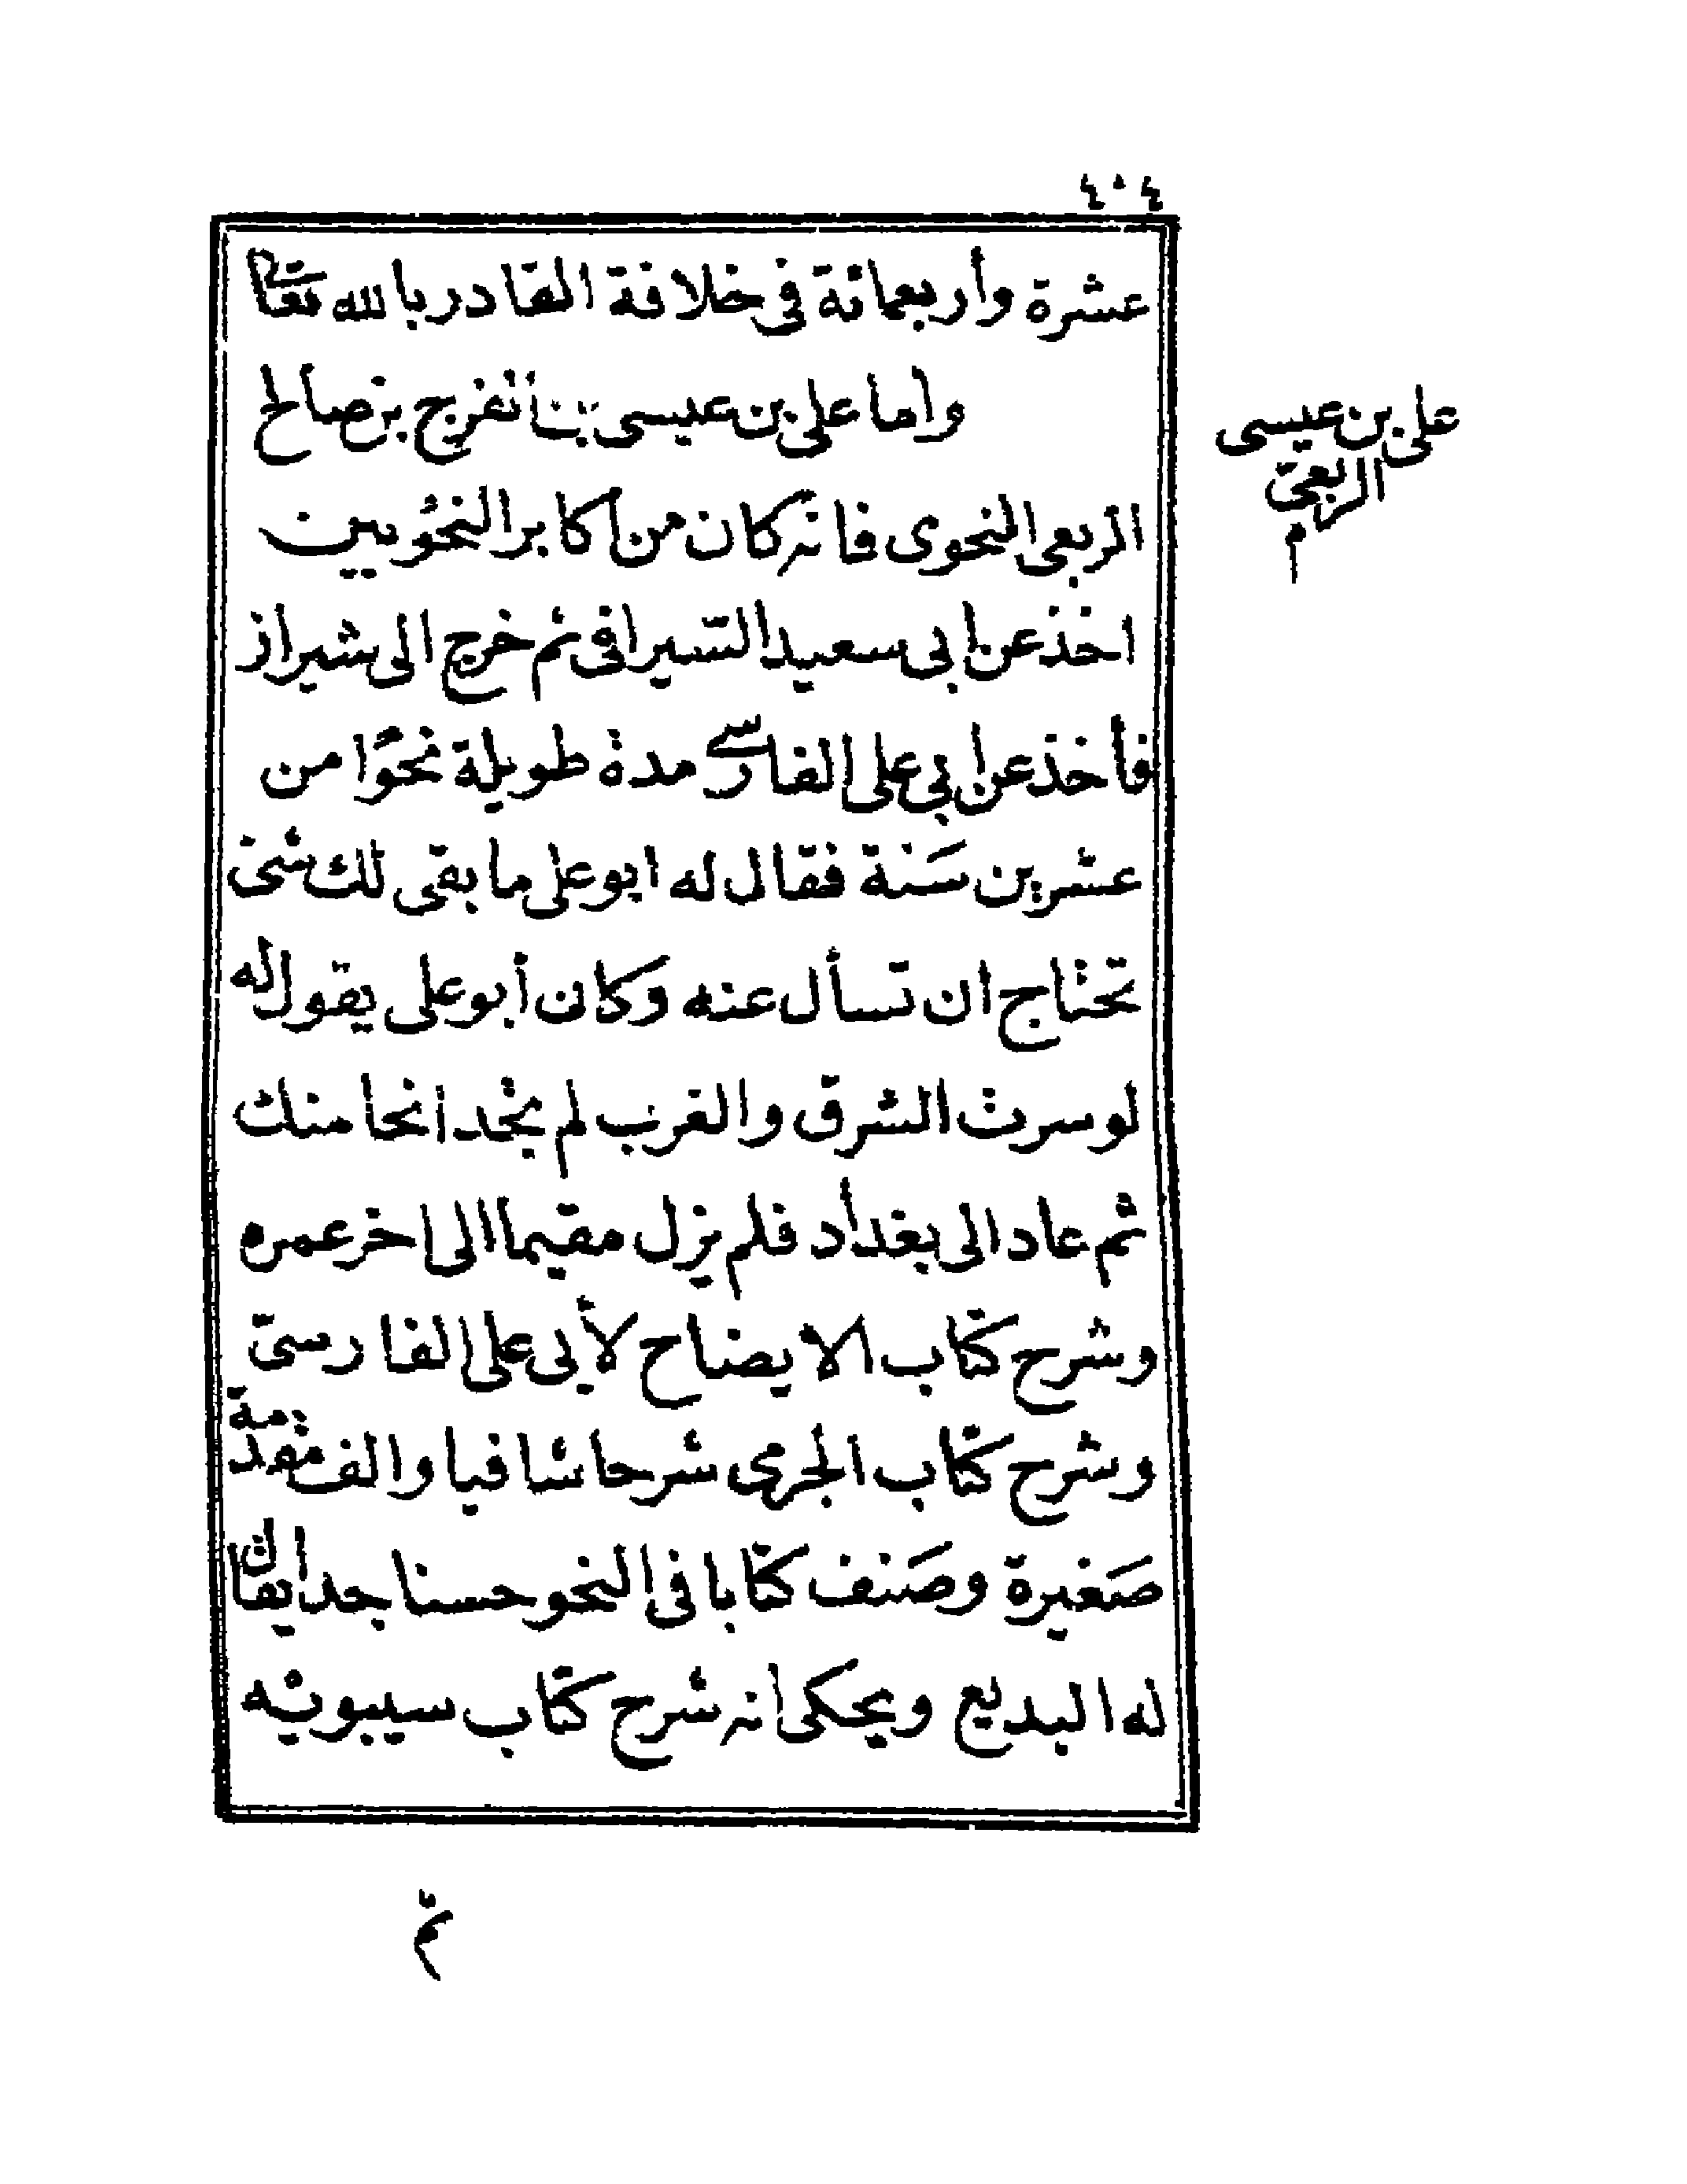 ٤٠٤
عشرة وأربعمائة في خلافة القادر بالله تعالى
واما على بن عيسى بن الفرج بن صالح
على بن عيسى
الربعىّ
م
الربعى النحوى فانه كان من أكابر النحويين
اخذ عن ابى سعيد السّيرافى ثم خرج الى شيراز
فأخذ عن ابي على الفارسى مدة طويلة نحوًا من
عشرين سَنة فقال له ابو على ما بقى لك شئ
تحتاج ان تسأل عنه وكان أبو على يقول له
لو سرت الشرق والغرب لم تجد انحا منك
ثم عاد الى بغداد فلم يزل مقيما الى اخر عمره
وشرح كتاب الايضاح لأبى على الفارسىّ
وشرح كتاب الجرمى شرحا شافيا والف مقدّمة
صَغيرة وصَنف كتابا فى النحو حسنا جدا يقال
له البديع ويحكى انه شرح كتاب سيبويه
ثم